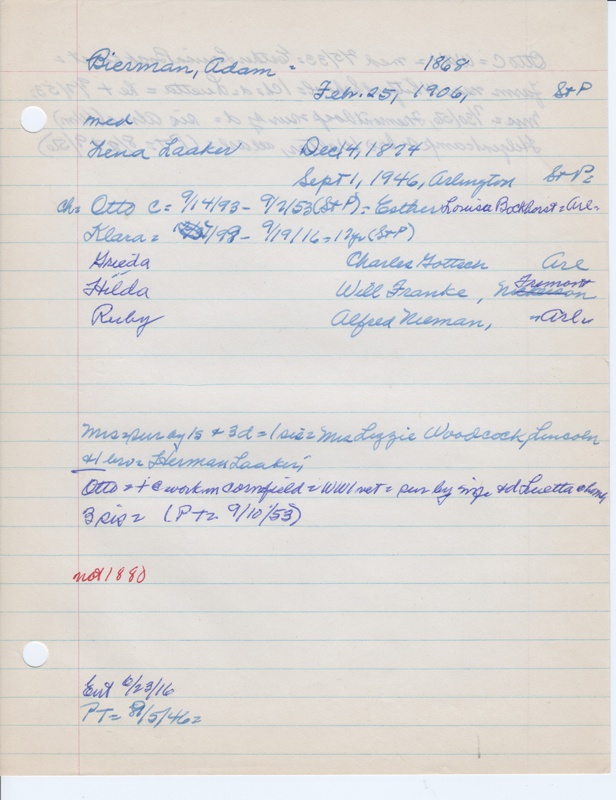 Bierman, Adam. 1868
Feb. 25, 1906, St P
med
Lena Laaker Dec 14, 1874
Sept 1, 1946, Arlington St P=
ch= Otto C = 9/14/93 - 9/2/53 (St P) = Esther Louisa Bockhorst = Arl-
Klara = /99 - 9/19/16 = 17yr (St P)
Grieda Charles Gottsch Arl
Hilda Will Franke, Fremont
Ruby Alfred Nieman, Arl
Mrs = sur by 1s + 3d = 1 sis = Mrs Lizzie Woodcock, Lincoln
+ 1 bro = Herman Laaker,
Otto = + c work in cornfield = WW1 vet = sur by + d Luetta
3 sis = (PT= 9/10/53)
not 1880
Ent 6/23/16
PT= 9/5/46=